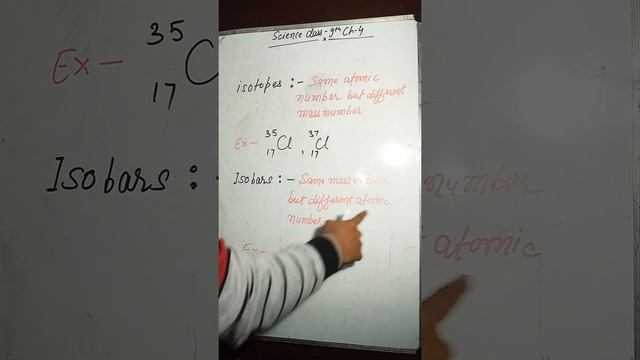 Science class-9th Ch-4
isotopes :- Same atomic
number but different
mass number.
Ex- ³⁵₁₇Cl , ³⁷₁₇Cl
Isobars :- Same mass number
but different atomic
number-
Ex-